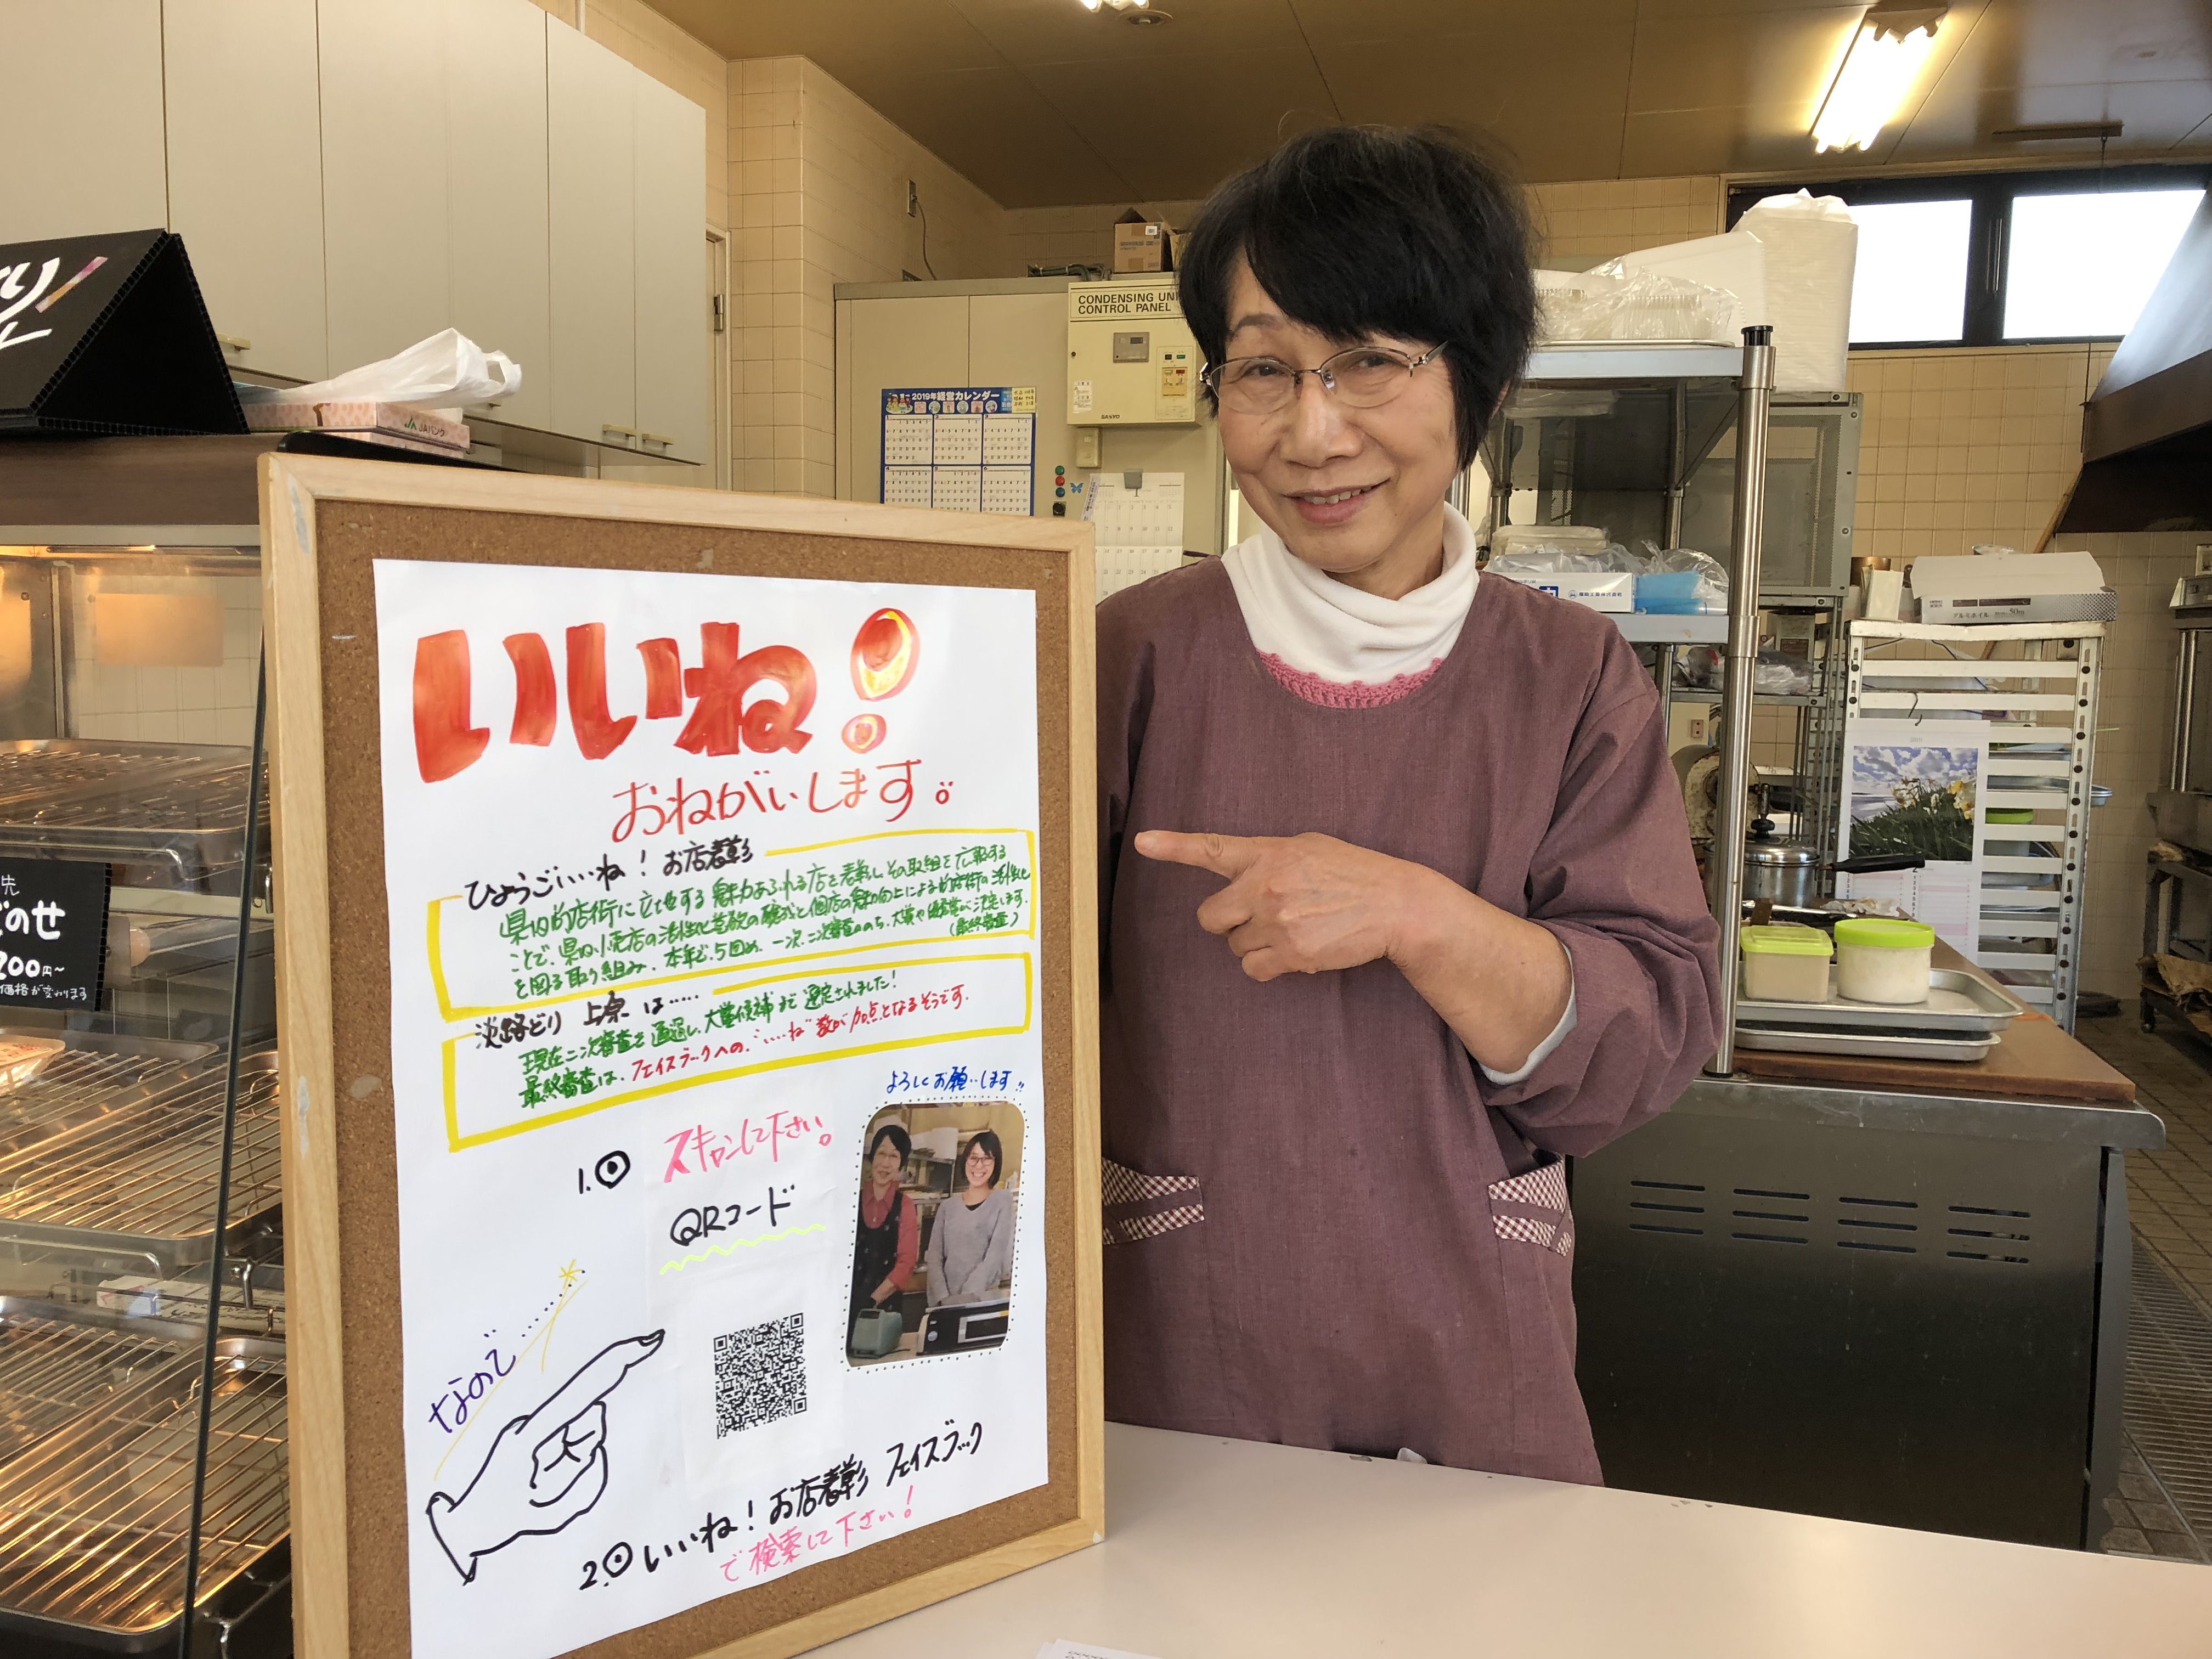 いいね!
おねがいします。
ひょうごいいね!お店表彰
県内商店街に立地する魅力あふれる店を表彰し その取組を広報する
ことで、県内小売店の活性化
を図る取り組み。本年で5回め。一次、二次審査ののち、大賞や優秀賞が決定します。
(最終審査)
淡路どり 上原 は……
現在二次審査を通過し、大賞候補まで選定されました!
最終審査は、フェイスブックへの、"いいね"数が加点となるそうです。
よろしくお願いします!!
1.◉ スキャンして下さい。
QRコード
なので……
2.◉ いいね!お店表彰 フェイスブック
で検索して下さい!
CONDENSING UNI
CONTROL PANEL
SANYO
2019年経営カレンダー
JAバンク
先
どのせ
200円~
価格が変わります
アルミホイル
50m